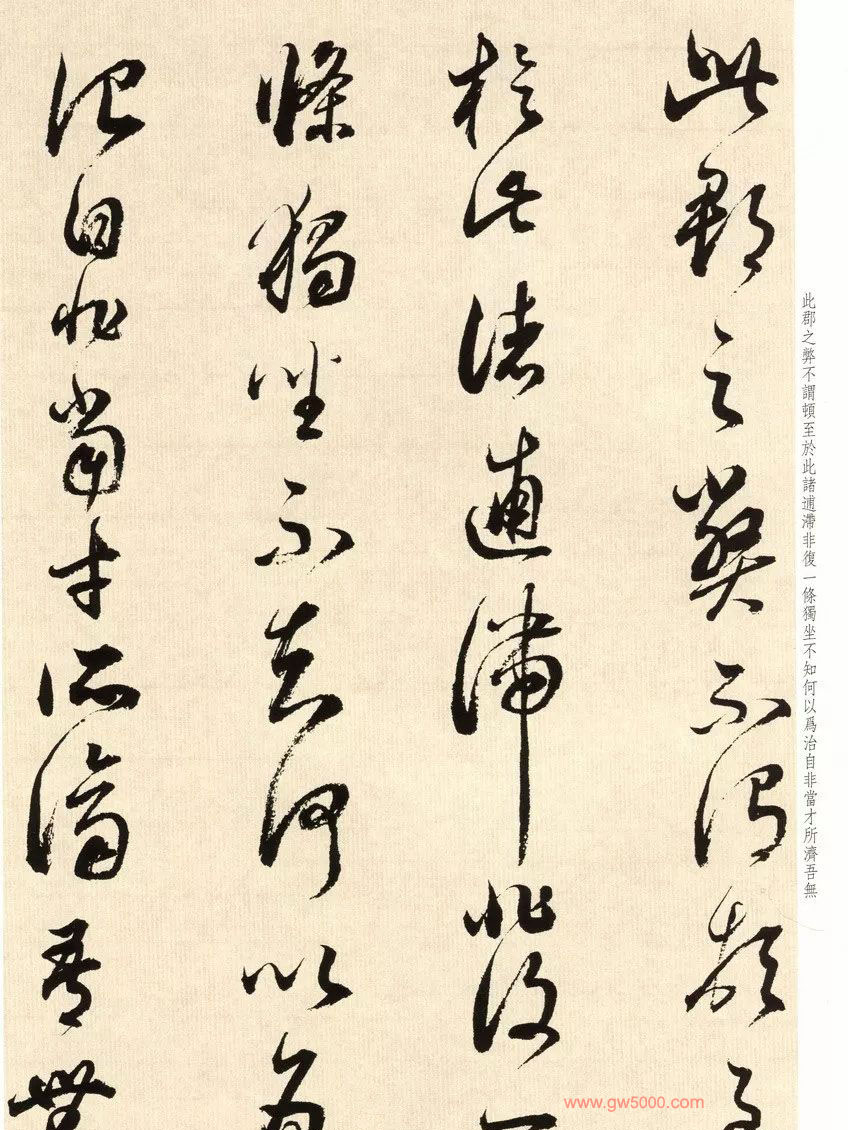 此郡之弊不謂頓至
於此諸逋滯非復一
條獨坐不知何以爲
治自非當才所濟吾無
此郡之弊不謂頓至於此諸逋滯非復一條獨坐不知何以爲治自非當才所濟吾無
www.gw5000.com